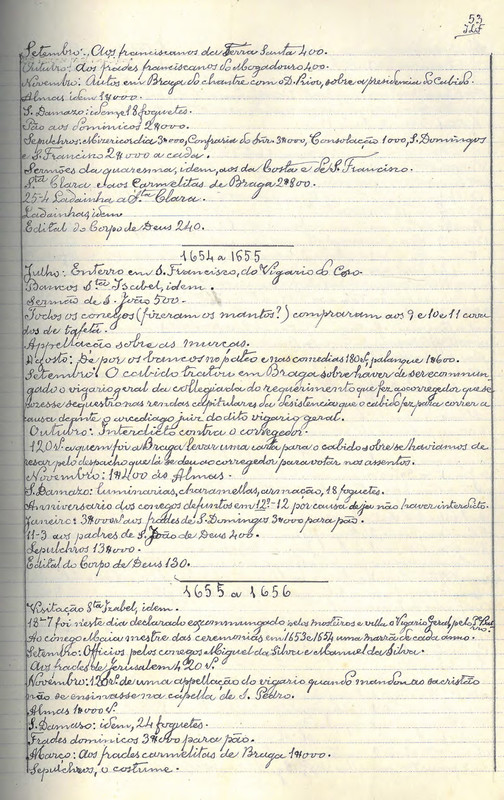 53
Setembro: Aos franciscanos da Terra Santa 400.
Outubro: Aos frades franciscanos do Mogadouro 400.
Novembro: Autos em Braga do chantre com o D. Prior, sobre a presidencia do cabido.
Almas idem 1#000.
S. Damazo: idem, 18 foguetes.
Pão aos dominicos 2#000.
Sepulchros: Misericordia 3#000, Confraria do Snr. 3#000, Consolação 1000, S. Domingos
e S. Francisco 2#000 a cada.
Sermões da quaresma, idem, aos da Costa e de S. Francisco.
Sta Clara e aos Carmelitas de Braga 2#800.
25-4 Ladainha a Sta Clara.
Ladainhas, idem
Edital do Corpo de Deus 240.
1654 a 1655
Julho: Enterro em S. Francisco, do Vigario do Coro.
Bancos Sta Isabel, idem.
Sermão de S. João 500.
Todos os conegos (fizeram os mantos?) compraram aos 9 e 10 e 11 cova
dos de tafetá.
Appellação sobre as murças.
Agosto: De por os bancos no pateo e nas comedias 180 rs, palanque 1#600.
Setembro: O cabido tratou em Braga sobre haver de ser excommun
gado o vigario geral da collegiada do requerimento que fez ao corregedor que se
fizesse sequestro nas rendas capitulares da desistencia que o cabido fez para correr a
causa deante o arcediago juiz do dito vigario geral.
Outubro: Interdicto contra o corregedor.
120 rs a quem foi a Braga levar uma carta para o cabido sobre se haviamos de
resar pelo despacho que lá se deu ao corregedor para votar nos assentos.
Novembro: 1#400 ás Almas.
S. Damazo: luminarias, charamellas, armação, 18 foguetes.
Anniversario dos conegos defuntos em 12-12 por causa de já não haver interdicto.
Janeiro: 3#000 rs aos frades de S. Domingos 3#000 para pão.
11-3 aos padres de S. João de Deus 400.
Sepulchros 13#000.
Edital do Corpo de Deus 130.
1655 a 1656
Visitação Sta Izabel, idem.
18-7 foi neste dia declarado excommungado pelos mosteiros e villa o Vigario Geral, pelo
Ao cónego Maia mestre das ceremonias em 1653 e 1654 uma marrã de cada anno.
Setembro: Officios pelos conegos Miguel da Silva e Manuel da Silva.
Aos frades de Jerusalem 420 rs.
Novembro: 120 rs de uma appellação do vigario quando mandou ao sacristão
não se ensinasse na capella de S. Pedro.
Almas 1#000 rs.
S. Damazo: idem, 24 foguetes.
Frades dominicos 3#000 para pão.
Março: Aos frades carmelitas de Braga 1#000.
Sepulchros, o costume.